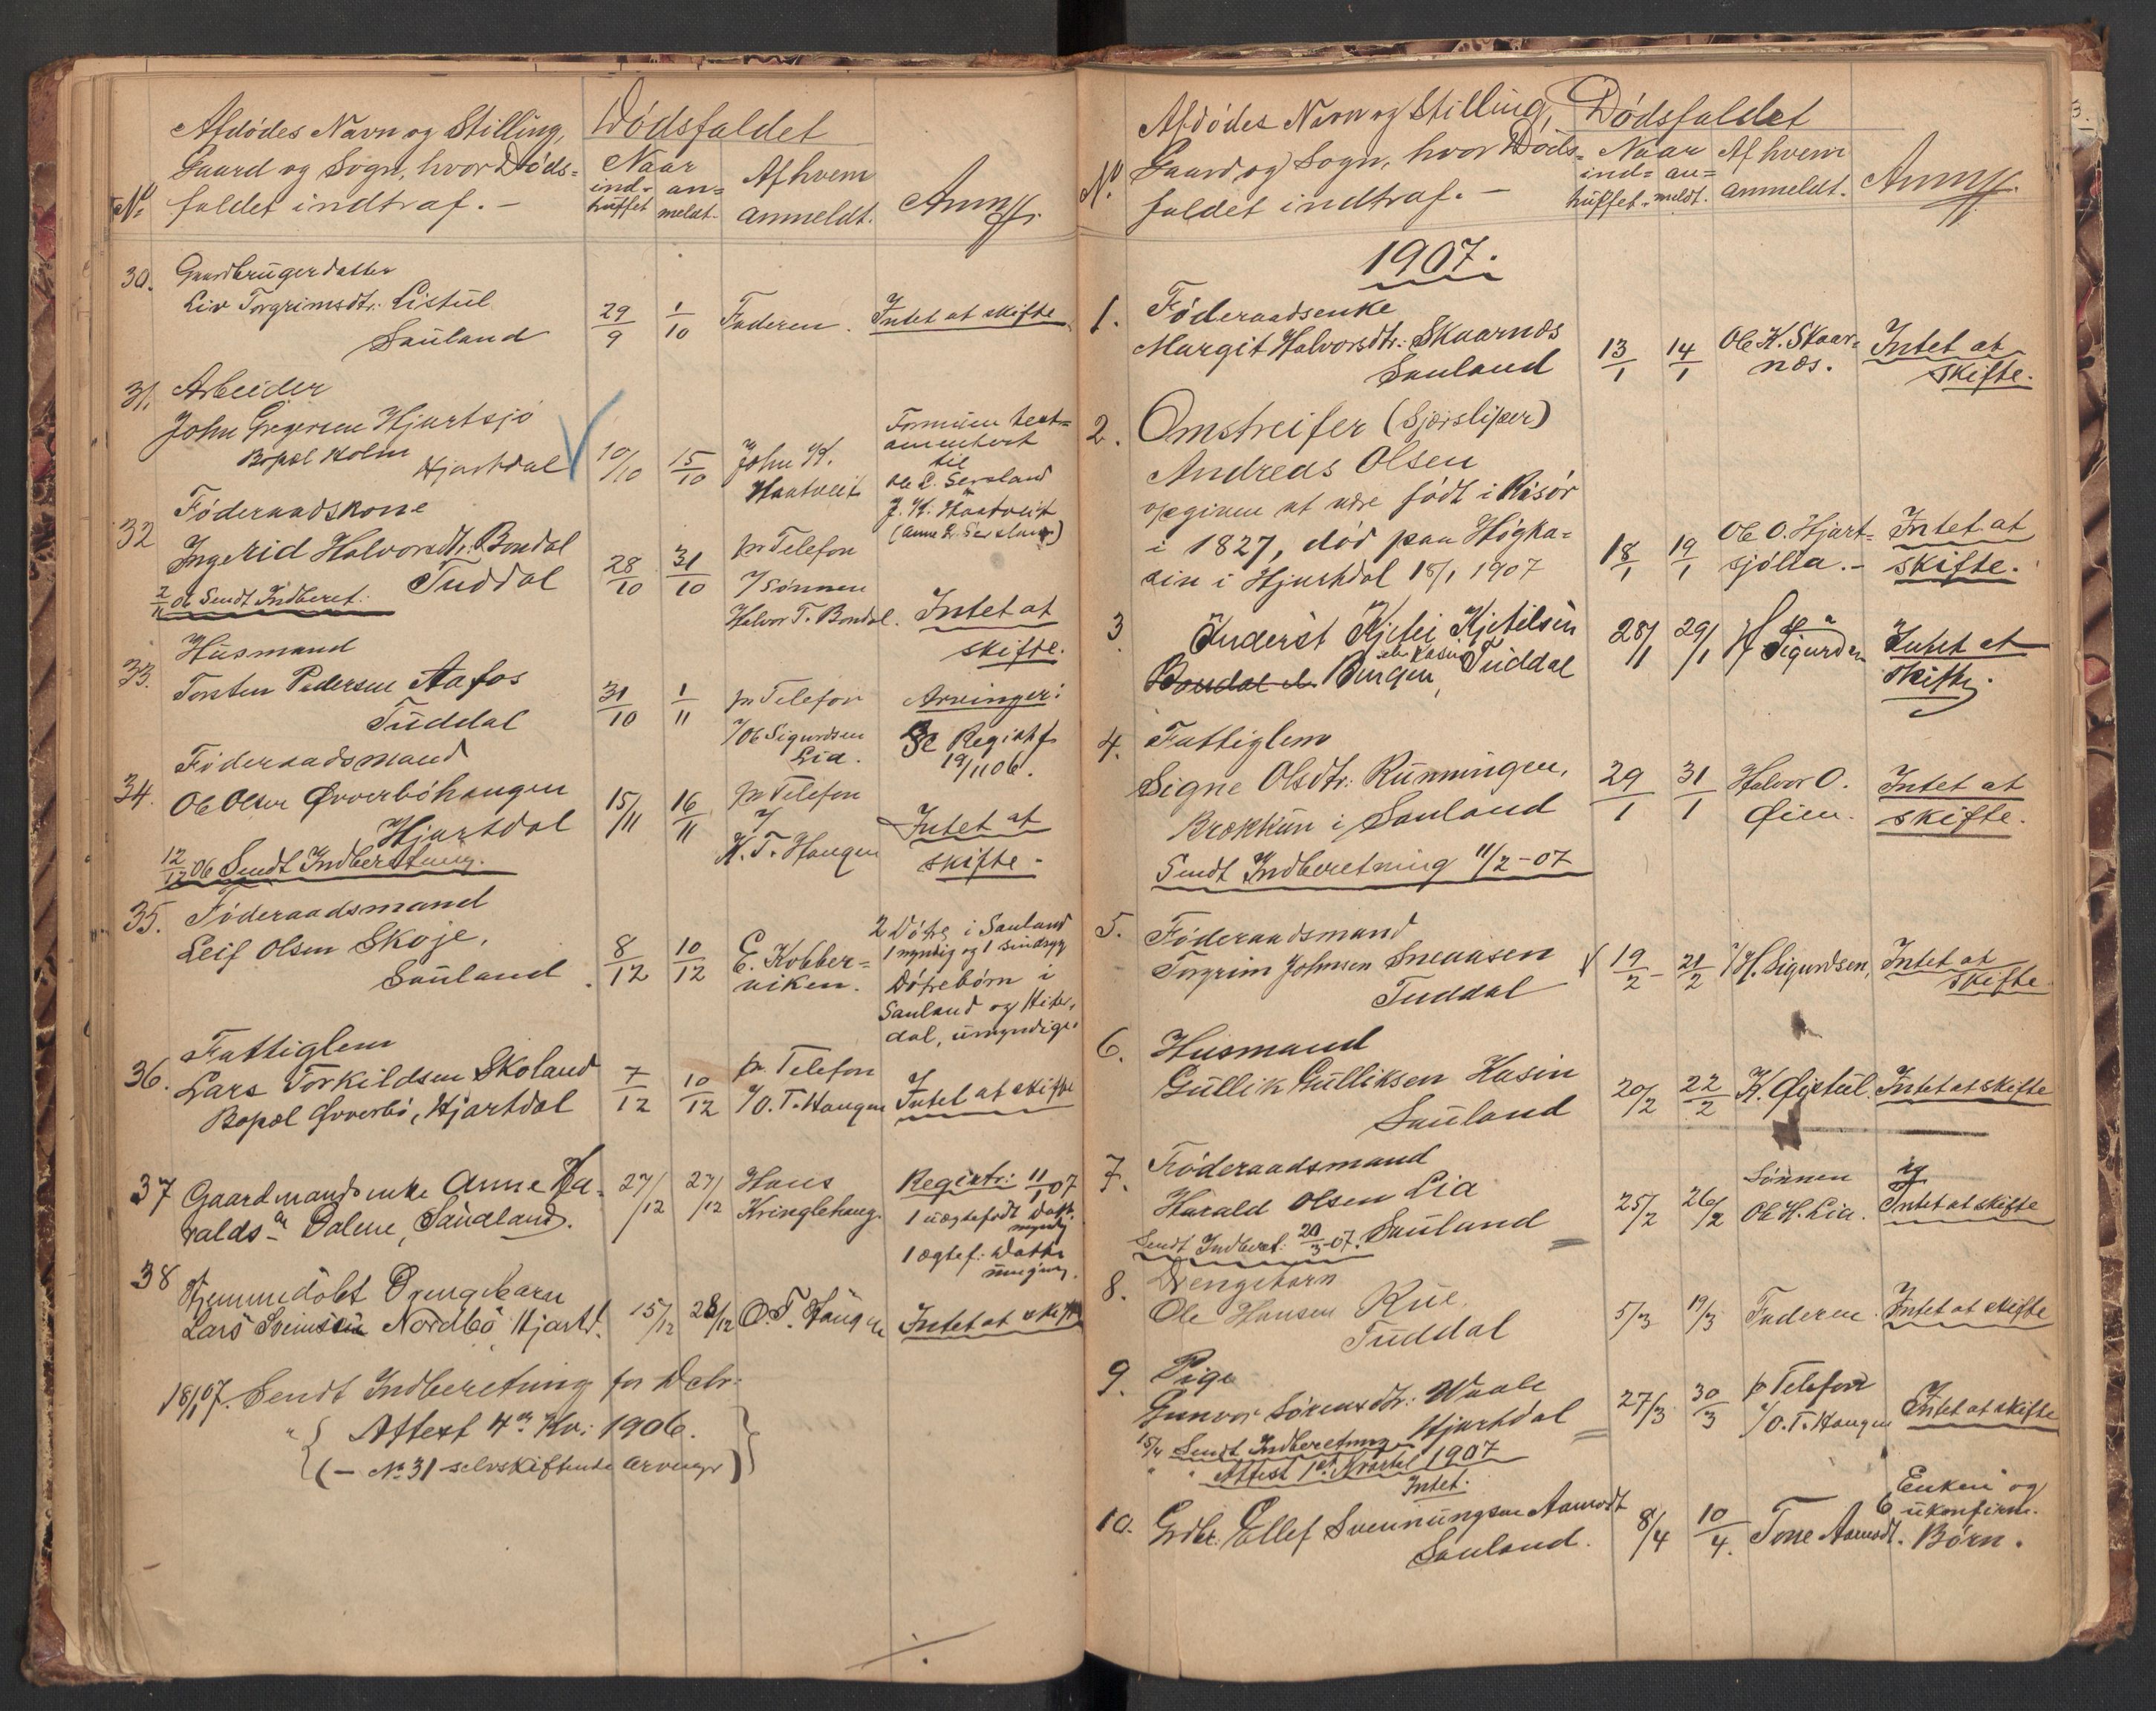 Afdödes Navn og Stilling,
Gaard og Sogn, hvor Döds-
faldet indtraf. -
No
Dödsfaldet
Naar
ind- an-
truffet meldt.
Af hvem
anmeldt.
Anm.
30. Gaardbrugerdatter
Liv Torgrimsdtr: Listul
Sauland
29/9 1/10 Faderen. Intet at skifte
31. Arbeider
John Gregersen Hjartsjö
Bopæl Holm
Hjartdal
10/10 15/10 John H.
Haatveit
Formuen test-
amentert
til
Ole L. Sersland
J. H. Haatveit
(Anne L. Sersland)
32 Föderaadskone
Ingerid Halvorsdtr: Bondal
Tuddal
2/11 06 Sendt Indberet:
28/10 31/10 pr Telefon
v/Sönnen
Halvor T. Bondal.
Intet at
skifte.
33. Husmand
Torsten Pedersen Aafos
Tuddal
31/10 1/11 pr Telefon
v/Ole Sigurdsen
Lia.
Arvinger:
Se Registr.
19/11 06.
34. Föderaadsmand
Ole Olsen Øvverböhaugen
Hjartdal
12/12 06 Sendt Indberetning.
15/11 16/11 pr Telefon
v/
H. T. Haugen
Intet at
skifte.
35. Föderaadsmand
Leif Olsen Skoje,
Sauland.
8/12 10/12 E. Kobber-
viken.
2 Døtre i Sauland
1 myndig og 1 sindsyg
Døtrebørn i
Sauland og Hitter-
dal, umyndige.
36. Fattiglem
Lars Torkildsen Skoland
Bopæl Øvverbö, Hjartdal
7/12 10/12 pr. Telefon
v/O. T. Haugen
Intet at skifte
37 Gaardmandsenke Anne Ha-
ralds dr Dalene, Saudland.
27/12 27/12 Hans
Kringlehaug.
Registr: 11/1 07
1 uægtefødt Datt.
myndig
1 ægtef: Datter
umynd.
38 Hjemmedöbt Drengebarn
Lars Sveinsen Nordbö, Hjartd.
15/12 28/12 O. T. Haugen
Intet at skifte
18/1 07. Sendt Indberetning for Debr:
" { Attest 4de Kv: 1906. }
(- No 31 selvskiftende arvinger)
·/.
Afdödes Navn og Stilling,
Gaard og Sogn, hvor Döds-
faldet indtraf. -
No
Dödsfaldet
Naar
ind- an-
truffet. meldt.
Af hvem
anmeldt.
Anm.
1907.
1. Föderaadsenke
Margit Halvorsdtr: Skaarnæs
Sauland
13/1 14/1 Ole K. Skaar-
næs.
Intet at
skifte.
2. Omstreifer (Sjærsliper)
Andreas Olsen
opgiven at være födt i Risör
i 1827, död paa Högka-
sin i Hjartdal 18/1 1907
18/1 19/1 Ole O. Hjart-
sjölia. -
Intet at
skifte.
3 Inderst Kjetil Kjetilsen
Bondal el. Bergen, Tuddal
28/1 29/1 H Sigurdsen
Intet at
skifte.
4. Fattiglem
Signe Olsdtr: Rünningen,
Brækkun i Sauland
Sendt Indberetning 11/2-07
29/1 31/1 Halvor O.
Øien.
Intet at
skifte.
5. Föderaadsmand
Torgrim Johnsen Smaasen
Tuddal
19/2 - 21/2 v/H. Sigurdsen,
Intet at
skifte
6. Husmand
Gullik Gulliksen Kasin
Sauland
20/2 22/2 K. Øistul. Intet at skifte
7. Föderaadsmand
Harald Olsen Lia
Sauland
Sendt Indberet: 20/3-07.
25/2 26/2 Sönnen
Ole H. Lia.
Intet at skifte
8. Drengebarn
Ole Hansen Rue
Tuddal
5/3 19/3 Faderen. Intet at skifte
9. Pige
Gunvor Sörensdtr: Waale
Hjartdal
27/3 30/3 p Telefon
v/O. T. Haugen
Intet at skifte
15/4 Sendt Indberetning
" " Attest 1st Kvartal 1907
Intet.
10. Grdbr. Ellef Svenningsen Aamodt
Sauland.
8/4 10/4. Tone Aamodt.
Enken og
6 ukonfirm.
Börn.